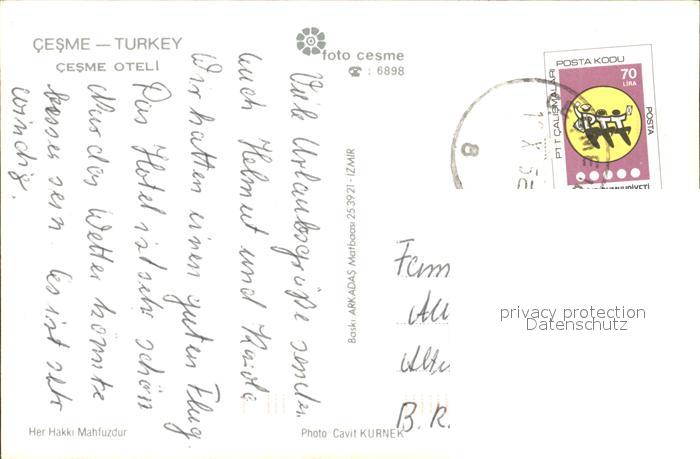 ÇEŞME — TURKEY
ÇEŞME OTELİ
foto çeşme
☎ : 6898
Viele Urlaubsgrüße senden
Euch Helmut und
Wir hatten einen guten Flug.
Das Hotel ist sehr schön
Nur das Wetter könnte
besser sein. Es ist sehr
windig.
Her Hakkı Mahfuzdur
Photo: Cavit KÜRNEK
Baskı: ARKADAŞ Matbaası 25 39 21 - İZMİR
POSTA KODU
70
LİRA
PTT ÇALIŞMALARI
POSTA
PTT
8
Fam
Alte
B.R.
privacy protection
Datenschutz